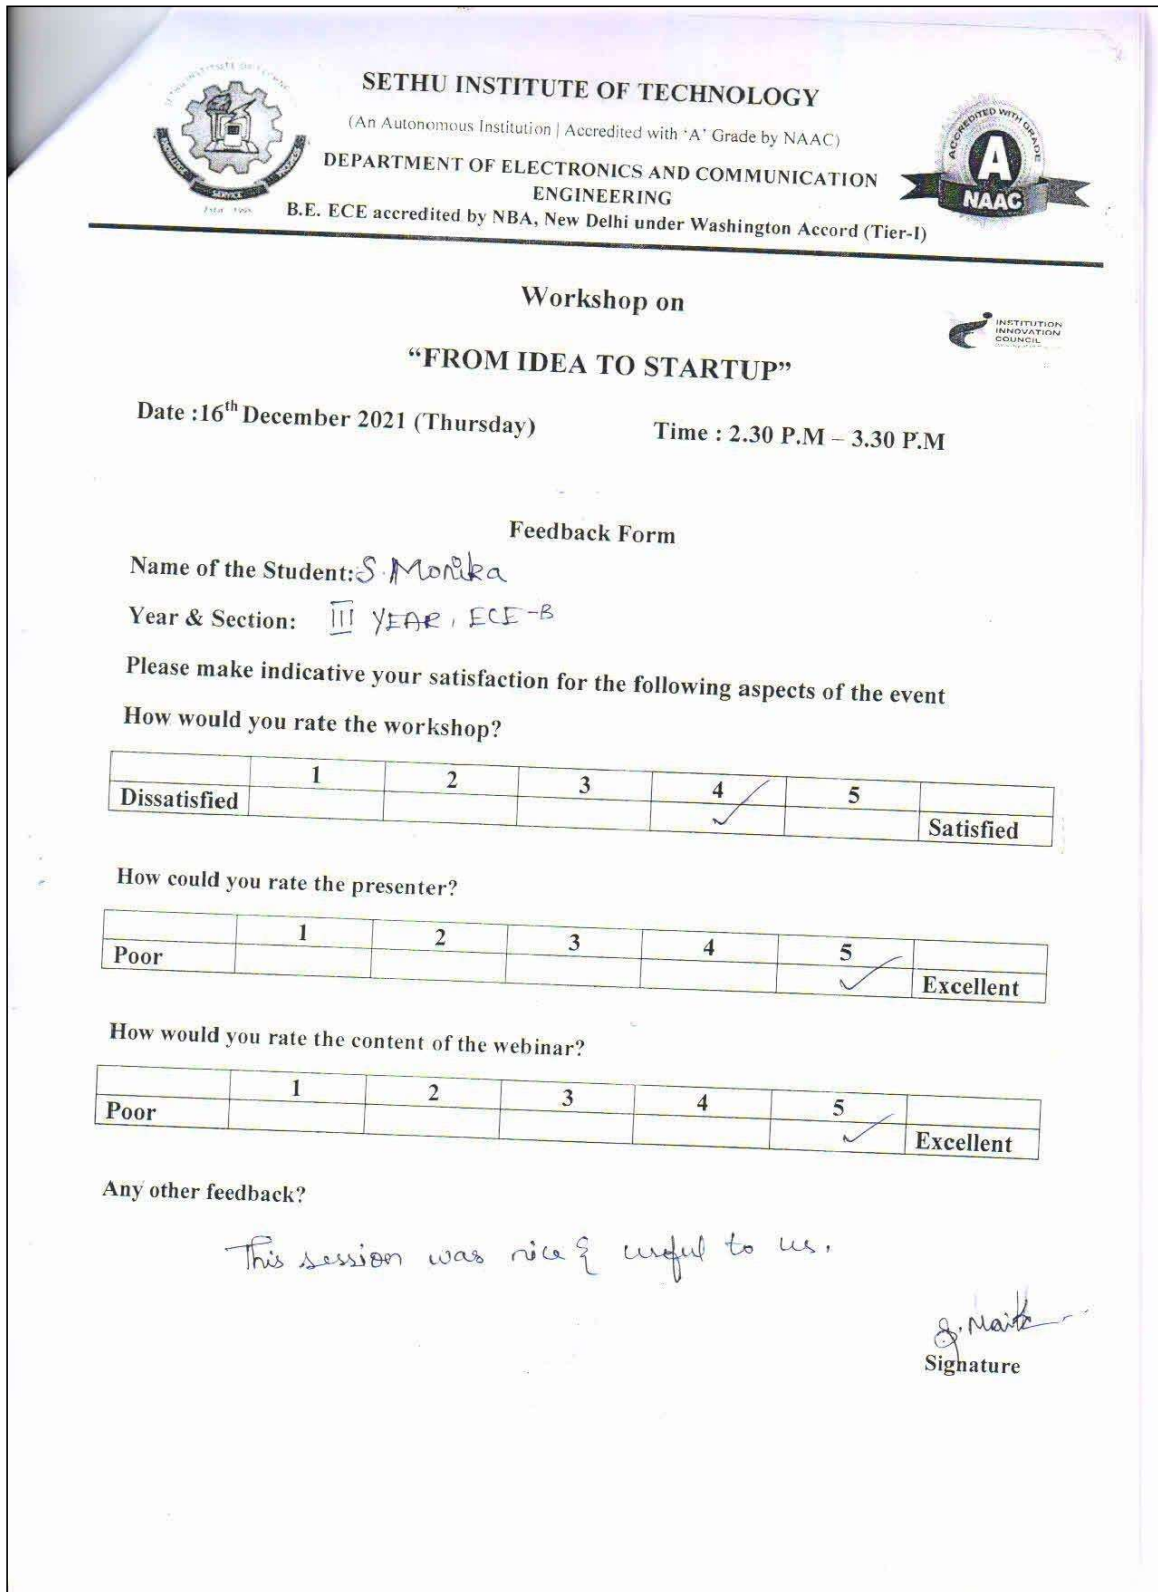 SETHU INSTITUTE OF TECHNOLOGY
(An Autonomous Institution | Accredited with 'A' Grade by NAAC)
DEPARTMENT OF ELECTRONICS AND COMMUNICATION
ENGINEERING
B.E. ECE accredited by NBA, New Delhi under Washington Accord (Tier-I)
SERVICE
ACCREDITED WITH GRADE
A
NAAC
Workshop on
INSTITUTION
INNOVATION
COUNCIL
“FROM IDEA TO STARTUP”
Date :16th December 2021 (Thursday) Time : 2.30 P.M – 3.30 P.M
Feedback Form
Name of the Student: S. Monika
Year & Section: III YEAR, ECE-B
Please make indicative your satisfaction for the following aspects of the event
How would you rate the workshop?
1 2 3 4 5
Dissatisfied ✓ Satisfied
How could you rate the presenter?
1 2 3 4 5
Poor ✓ Excellent
How would you rate the content of the webinar?
1 2 3 4 5
Poor ✓ Excellent
Any other feedback?
This session was nice & useful to us.
Signature